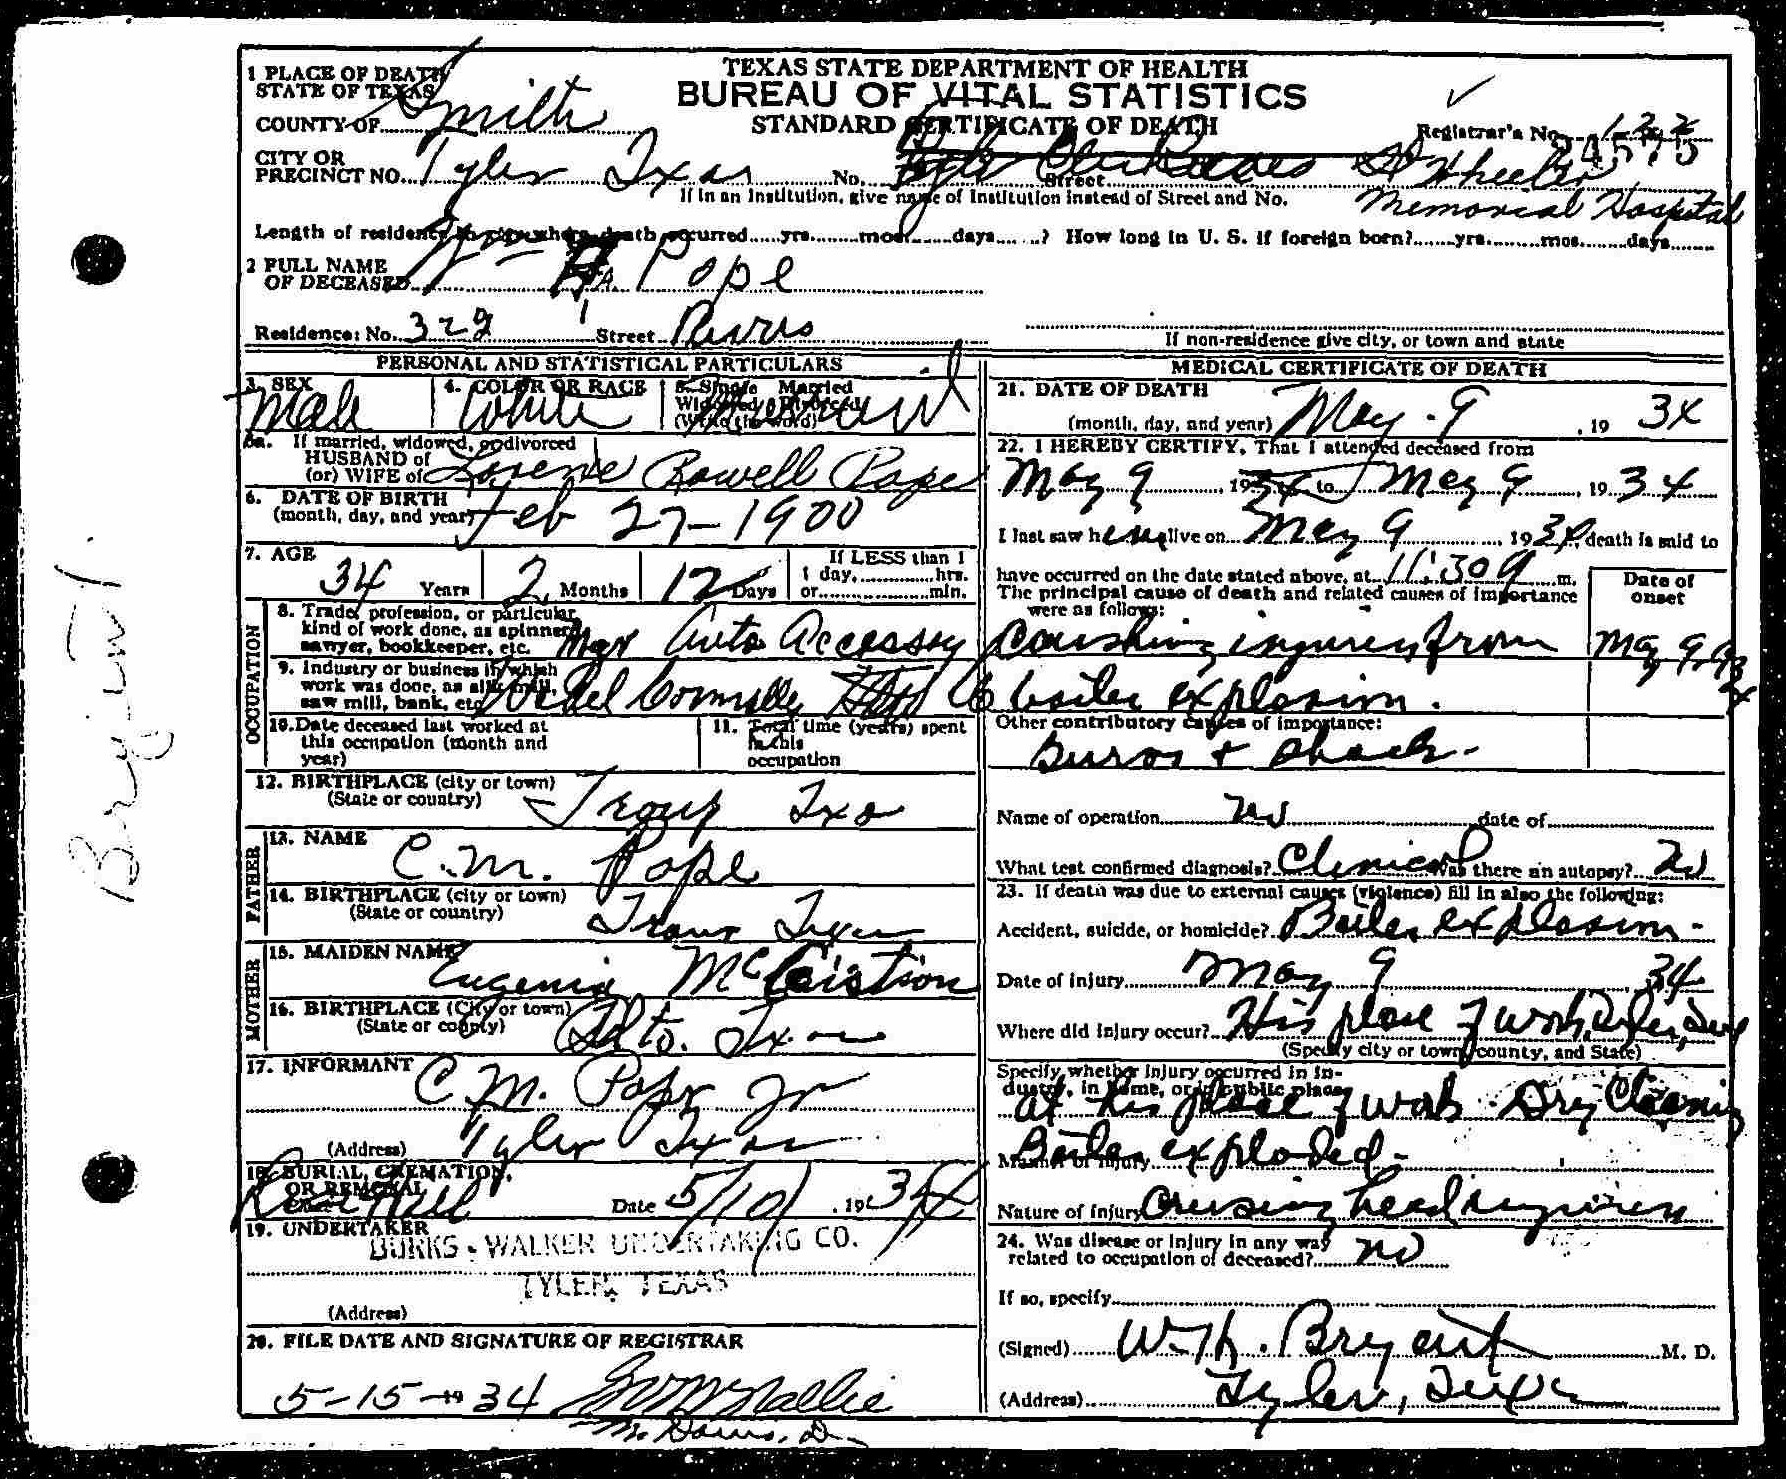 TEXAS STATE DEPARTMENT OF HEALTH
BUREAU OF VITAL STATISTICS
STANDARD CERTIFICATE OF DEATH
1 PLACE OF DEATH
STATE OF TEXAS
COUNTY OF Smith
Registrar's No. 122
24575
CITY OR
PRECINCT NO. Tyler Texas No. Street Wheeler
If in an Institution, give name of Institution instead of Street and No. Memorial Hospital
Length of residence in city where death occurred yrs. mos. days ? How long in U. S. if foreign born? yrs. mos. days
2 FULL NAME
OF DECEASED Wm Pope
Residence: No. 329 Street
If non-residence give city, or town and state
PERSONAL AND STATISTICAL PARTICULARS
3. SEX Male 4. COLOR OR RACE White 5. Single Married Widowed Divorced (Write the word) Married
5a. If married, widowed, or divorced
HUSBAND of
(or) WIFE of Lorene Rowell Pope
6. DATE OF BIRTH
(month, day, and year) Feb 27-1900
7. AGE 34 Years 2 Months 12 Days If LESS than 1 day, hrs. or min.
OCCUPATION
8. Trade, profession, or particular
kind of work done, as spinner,
sawyer, bookkeeper, etc. Mgr Auto Accessory
9. Industry or business in which
work was done, as silk mill,
saw mill, bank, etc.
10. Date deceased last worked at
this occupation (month and
year)
11. Total time (years) spent
in this
occupation
12. BIRTHPLACE (city or town)
(State or country) Troup Txs
FATHER
13. NAME C. M. Pope
14. BIRTHPLACE (city or town)
(State or country) Troup Texas
MOTHER
15. MAIDEN NAME Eugenia McCuistion
16. BIRTHPLACE (City or town)
(State or county) Alto. Texas
17. INFORMANT C M. Pope Jr
(Address) Tyler Texas
18. BURIAL, CREMATION,
OR REMOVAL
Rose Hill Date 5/10/ 1934
19. UNDERTAKER
BURKS - WALKER UNDERTAKING CO.
TYLER, TEXAS
(Address)
20. FILE DATE AND SIGNATURE OF REGISTRAR
5-15-1934
MEDICAL CERTIFICATE OF DEATH
21. DATE OF DEATH
(month, day, and year) May. 9, 1934
22. I HEREBY CERTIFY, That I attended deceased from
May 9, 1934 to May 9, 1934
I last saw him alive on May 9 1934, death is said to
have occurred on the date stated above, at 11:30 a m.
The principal cause of death and related causes of importance
were as follows:
Date of
onset
Crushing injuries from May 9, 1934
boiler explosion.
Other contributory causes of importance:
Burns + shock.
Name of operation no date of
What test confirmed diagnosis? Clinical Was there an autopsy? No
23. If death was due to external causes (violence) fill in also the following:
Accident, suicide, or homicide? Boiler explosion.
Date of injury May 9 34
Where did injury occur? His place of work, Tyler, Texas
(Specify city or town, county, and State)
Specify whether injury occurred in in-
dustry, in home, or in public place
at his place of work. Dry Cleaning
Manner of injury Boiler exploded.
Nature of injury Crushing head injuries
24. Was disease or injury in any way
related to occupation of deceased? no
If so, specify
(Signed) W. H. Bryant M. D.
(Address) Tyler, Texas
Bryant.